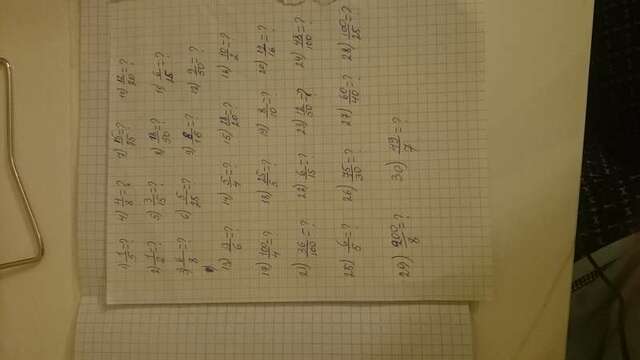 1) 1/5=? 4) 4/8=? 7) 15/25=? 10) 12/20=?
2) 1/2=? 5) 3/15=? 8) 18/50=? 11) 6/15=?
3) 6/8=? 6) 5/25=? 9) 8/16=? 12) 9/50=?
13) 3/6=? 14) 5/4=? 15) 18/20=? 16) 10/2=?
17) 100/4=? 18) 25/5=? 19) 8/10=? 20) 12/16=?
21) 36/100=? 22) 6/15=? 23) 12/50=? 24) 48/100=?
25) 6/5=? 26) 75/30=? 27) 60/40=? 28) 100/25=?
29) 200/8=? 30) 49/7=?